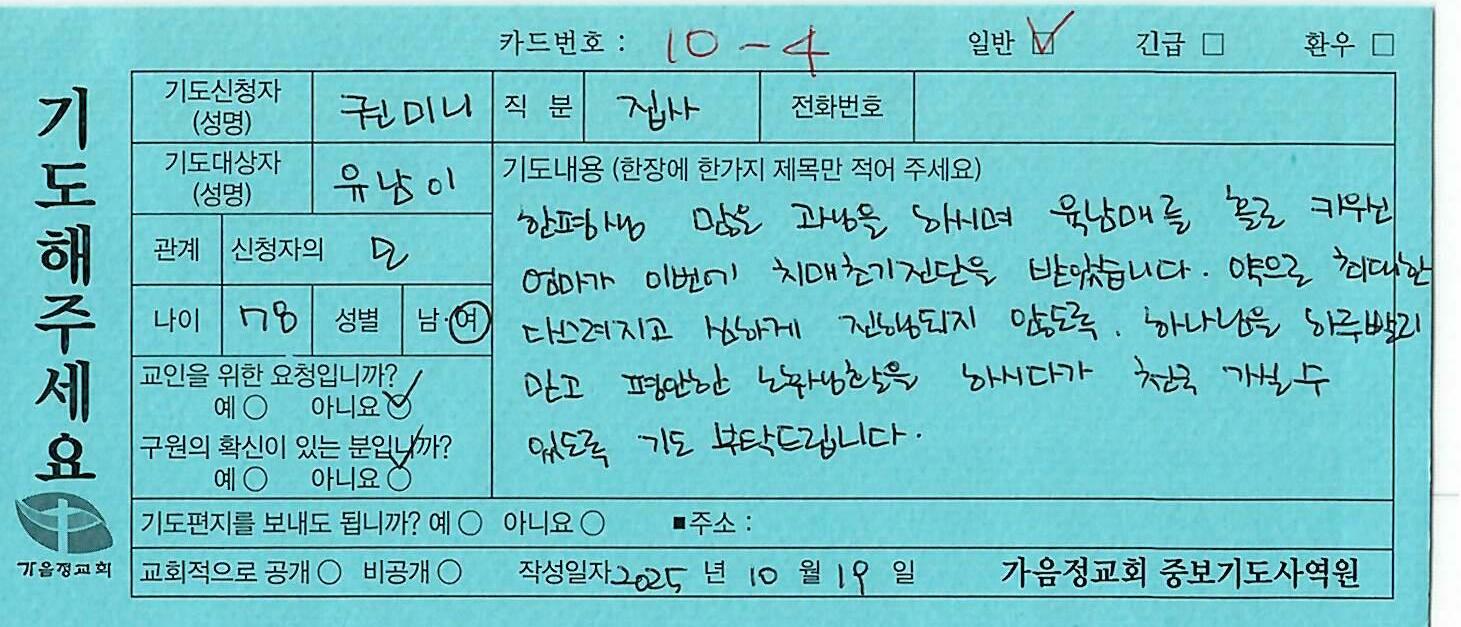 카드번호 : 10-4 일반 ☑ 긴급 □ 환우 □
기도해주세요
가음정교회
기도신청자 (성명) 권미니 직 분 집사 전화번호
기도대상자 (성명) 유남이
관계 신청자의 모
나이 78 성별 남·여
교인을 위한 요청입니까?
예 ○ 아니요 ○
구원의 확신이 있는 분입니까?
예 ○ 아니요 ○
기도내용 (한장에 한가지 제목만 적어 주세요)
한평생 많은 고생을 하시며 육남매를 홀로 키우신
엄마가 이번에 치매초기진단을 받았습니다. 약으로 최대한
다스려지고 심하게 진행되지 않도록. 하나님을 하루빨리
믿고 평안한 노후생활을 하시다가 천국 가실수
있도록 기도 부탁드립니다.
기도편지를 보내도 됩니까? 예 ○ 아니요 ○ ■주소 :
교회적으로 공개 ○ 비공개 ○ 작성일자 2025 년 10 월 19 일 가음정교회 중보기도사역원